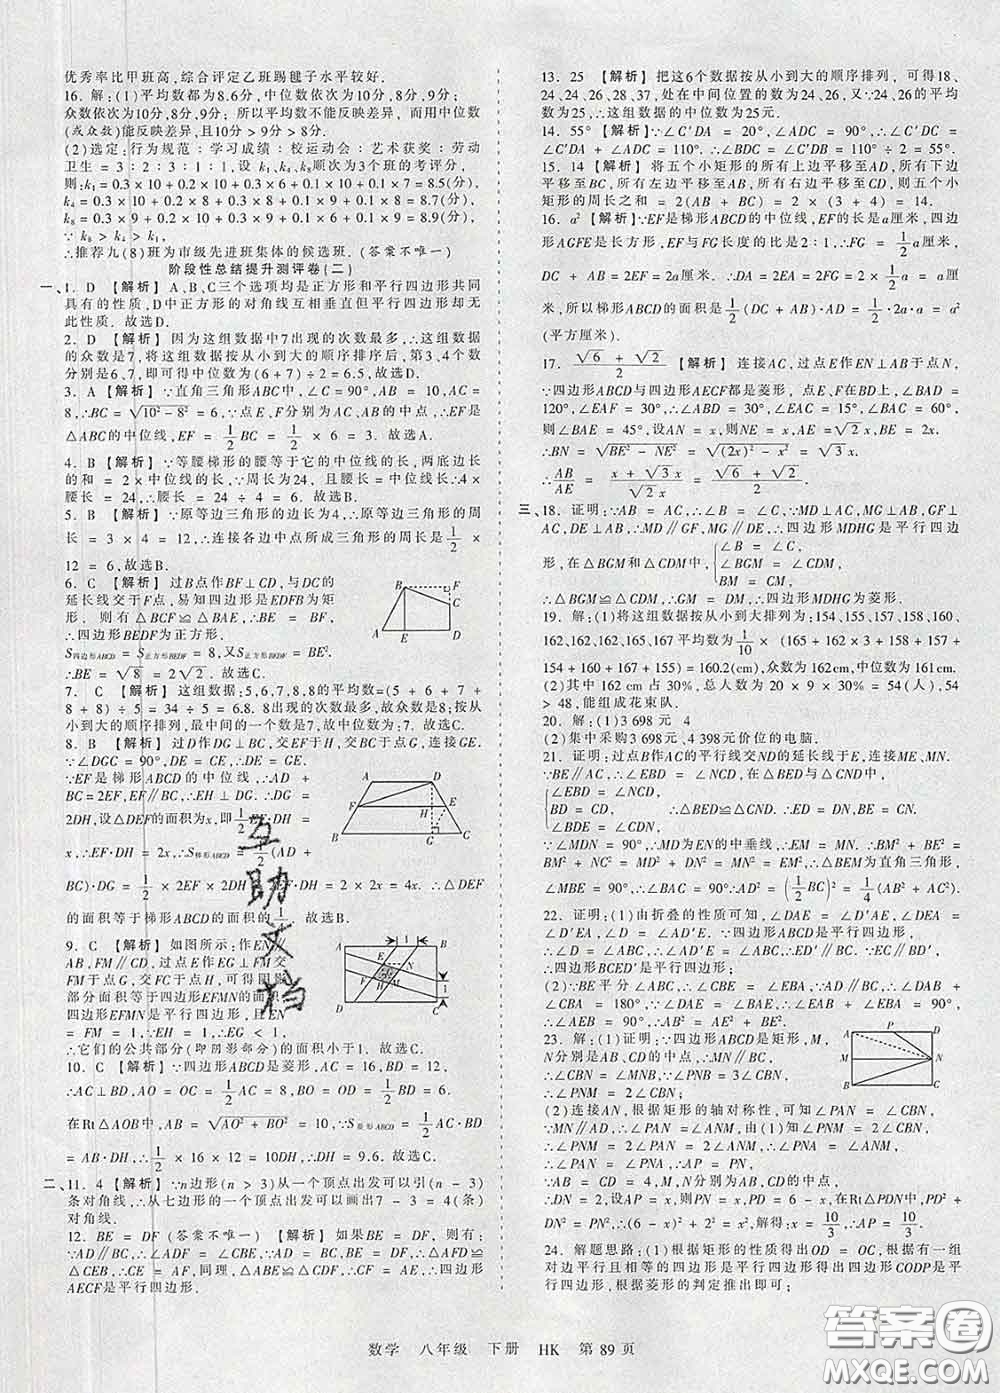 优秀率比甲班高,综合评定乙班踢毽子水平较好.
16. 解:(1)平均数都为8.6分,中位数依次为10分,8分,9分;
众数依次为10分,8分,9分;所以平均数不能反映差异,而用中位数
(或众数)能反映差异,且10分 > 9分 > 8分.
(2)选定:行为规范:学习成绩:校运动会:艺术获奖:劳动
卫生 = 3:2:3:1:1. 设 k₁、k₄、k₈顺次为3个班的考评分,
则:k₁ = 0.3 × 10 + 0.2 × 10 + 0.3 × 6 + 0.1 × 10 + 0.1 × 7 = 8.5(分),
k₄ = 0.3 × 10 + 0.2 × 8 + 0.3 × 8 + 0.1 × 9 + 0.1 × 8 = 8.7(分),
k₈ = 0.3 × 9 + 0.2 × 10 + 0.3 × 9 + 0.1 × 6 + 0.1 × 9 = 8.9(分),
∵ k₈ > k₄ > k₁,
∴推荐九(8)班为市级先进班集体的候选班. (答案不唯一)
阶段性总结提升测评卷(二)
一、1. D 【解析】A、B、C三个选项均是正方形和平行四边形共同
具有的性质,D中正方形的对角线互相垂直但平行四边形却无
此性质. 故选D.
2. D 【解析】因为这组数据中7出现的次数最多,这组数据
的众数是7,将这组数据按从小到大的顺序排序后,第3、4个数
分别是6,7,即可得中位数(6 + 7) ÷ 2 = 6.5,故选D.
3. A 【解析】∵直角三角形ABC中,∠C = 90°,AB = 10,AC =
8,∴BC = √(10² − 8²) = 6. ∵点E、F分别为AC、AB的中点,∴EF是
△ABC的中位线,EF = 1/2 BC = 1/2 × 6 = 3. 故选A.
4. B 【解析】∵等腰梯形的腰等于它的中位线的长,两底边长
的和 = 2 × 中位线的长,∵周长为24、且一腰长 = 中位线长,∴4
× 腰长 = 24,∴腰长 = 24 ÷ 4 = 6. 故选B.
5. B 【解析】∵原等边三角形的边长为4,∴原等边三角形的
周长是 4 × 3 = 12,∴连接各边中点所成三角形的周长是 1/2 ×
12 = 6,故选B.
6. C 【解析】过B点作BF⊥CD,与DC的
延长线交于F点,易证四边形EDFB为矩
形. 则有△BCF≌△BAE,∴BF = BE,
∴四边形BEDF为正方形.
S四边形ABCD = S正方形BEDF = 8,又S正方形BEDF = BE²,
∴BE = √8 = 2√2. 故选C.
B F
C
A E D
7. C 【解析】这组数据:5,6,7,8,8的平均数=(5 + 6 + 7 +
8 + 8) ÷ 5 = 34 ÷ 5 = 6.8. 8出现的次数最多,故众数是8,按从
小到大的顺序排列,最中间的一个数是7,故中位数:7. 故选C.
8. B 【解析】过D作DG⊥BC,交EF于H,交BC于点G,∵EF∥BC,
∴∠DGC = 90°,DE = CE,∴DE = GE.
∵EF是梯形ABCD的中位线,∴AD +
BC = 2EF,EF∥BC,∴EH⊥DG. ∵DG =
2DH,设△DEF的面积为x,即 1/2 EF·DH =
x,∴EF·DH = 2x,∴S梯形ABCD = 1/2 (AD +
BC)·DG = 1/2 × 2EF × 2DH = 2EF·DH = 2 × 2x = 4x. ∴△DEF
的面积等于梯形ABCD的面积的 1/4. 故选B.
A D
F H E
B G C
9. C 【解析】如图所示:作EN∥
AB,FM∥CD,过点E作EG⊥FM
于点G,交FC于点H,可得阴影
部分面积等于四边形EFMN的面积,
四边形EFMN是平行四边形,且EN
= FM = 1,∵EH = 1,∴EG < 1,
∴它们的公共部分(即阴影部分)的面积小于1. 故选C.
A 1 B
E N
F H M
D C
1
10. C 【解析】∵四边形ABCD是菱形,AC = 16,BD = 12,
∴AC⊥BD,AO = OC = 1/2 AC = 8,BO = OD = 1/2 BD = 6.
在Rt△ABO中,AB = √(AO² + BO²) = 10,∵S菱形ABCD = 1/2 AC·BD
= AB·DH,∴ 1/2 × 16 × 12 = 10·DH,∴DH = 9.6. 故选C.
二、11. 4 【解析】∵n边形(n > 3)从一个顶点出发可以引(n − 3)
条对角线,∴从七边形的一个顶点出发可以画出7 − 3 = 4(条)
对角线.
12. BE = DF (答案不唯一) 【解析】如果BE = DF,则有:
∵AD∥BC,∴∠ADF = ∠CBE,∵AD = BC,BE = DF,∴△AFD≌
△CEB,∴CE = AF,同理,△ABE≌△CDF,∴CF = AE,∴四边形
AECF是平行四边形.
13. 25 【解析】把这6个数据按从小到大的顺序排列,可得18、
24、24、26、28、31,处在中间位置的数为24、26,又∵24、26的平均数
为25,∴这组数据的中位数为25元.
14. 55° 【解析】∵∠C'DA = 20°,∠ADC = 90°,∴∠C'DC =
∠C'DA + ∠ADC = 110°,∴∠BDC = ∠BDC' = 1/2 ∠C'DC = 55°.
15. 14 【解析】将五个小矩形的所有上边平移至AD,所有下边
平移至BC,所有左边平移至AB,所有右边平移至CD,则五个小
矩形的周长之和 = 2(AB + BC) = 2 × (3 + 4) = 14.
16. a² 【解析】∵EF是梯形ABCD的中位线,EF的长是a厘米,四边
形AGFE是长方形,EF与FG长度的比是2:1,∴FG = 1/2 a厘米,
∴DC + AB = 2EF = 2a厘米. ∴高AD = 2FG = 2 × 1/2 a = a厘
米. 所以梯形ABCD的面积是 1/2 (CD + AB)·AD = 1/2 ·2a·a = a²
(平方厘米).
17. (√6 + √2)/2 【解析】连接AC,过点E作EN⊥AB于点N,
∵四边形ABCD与四边形AECF都是菱形,点E、F在BD上,∠BAD =
120°,∠EAF = 30°,∴∠ABD = 30°,∠EAC = 15°,∠BAC = 60°,
则∠BAE = 45°,设AN = x,则NE = x,AE = √2x,BE = 2x.
∴BN = √(BE² − NE²) = √((2x)² − x²) = √3x.
∴AB/AE = (x + √3x)/(√2x) = (√6 + √2)/2.
三、18. 证明:∵AB = AC,∴∠B = ∠C,∵MD⊥AC,MG⊥AB,GF⊥
AC,DE⊥AB,∴MD∥GF,MG∥DE,∴四边形MDHG是平行四边
形,在△BGM和△CDM中,{∠B = ∠C,
∠BGM = ∠CDM,
BM = CM,
∴△BGM≌△CDM,∴GM = DM,∴四边形MDHG为菱形.
19. 解:(1)将这组数据按从小到大排列为:154,155,157,158,160,
162,162,162,165,167平均数为 1/10 × (165 + 162 × 3 + 158 + 157 +
154 + 160 + 167 + 155) = 160.2(cm),众数为162 cm,中位数为161 cm.
(2)其中 162 cm 占 30%,总人数为 20 × 9 × 30% = 54(人),54
> 48,能组成花束队.
20. 解:(1)3 698元 4
(2)集中采购3 698元、4 398元价位的电脑.
21. 证明:过点B作AC的平行线交ND的延长线于E,连接ME、MN.
∵BE∥AC,∴∠EBD = ∠NCD,在△BED和△CND中,
{∠EBD = ∠NCD
BD = CD,
∠BDE = ∠CDN ∴△BED≌△CND. ∴BE = NC,∴ED = DN.
∵∠MDN = 90°,∴MD为EN的中垂线,∴EM = MN. ∴BM² + BE² =
BM² + NC² = MD² + DN² = MN² = EM²,∴△BEM为直角三角形,
∠MBE = 90°. ∴∠BAC = 90°. ∴AD² = (1/2 BC)² = 1/4 (AB² + AC²).
22. 证明:(1)由折叠的性质可知,∠DAE = ∠D'AE,∠DEA =
∠D'EA,∠D = ∠AD'E,∵四边形ABCD是平行四边形,
∴∠D = ∠ABC,∴∠ABC = ∠AD'E,∴BC∥ED',∵EC∥BD',
∴四边形BCED'是平行四边形;
(2)∵BE平分∠ABC,∴∠CBE = ∠EBA,∵AD∥BC,∴∠DAB +
∠CBA = 180°,∵∠DAE = ∠BAE,∴∠EAB + ∠EBA = 90°,
∴∠AEB = 90°,∴AB² = AE² + BE².
23. 解:(1)证明:∵四边形ABCD是矩形,M、
N分别是AB、CD的中点,∴MN∥BC,
∴∠CBN = ∠MNB,∵∠PNB = 3∠CBN,
∴∠PNM = 2∠CBN;
A P D
M N
B C
(2)连接AN,根据矩形的轴对称性,可知∠PAN = ∠CBN,
∵MN∥AD,∴∠PAN = ∠ANM,由(1)知∠PNM = 2∠CBN,
∴∠PNM = 2∠PAN = 2∠ANM,∴∠PAN = ∠PNA,
∴AP = PN,
∵AB = CD = 4,M,N分别为AB,CD的中点,
∴DN = 2,设AP = x,则PD = 6 − x,在Rt△PDN中,PD² +
DN² = PN²,∴(6 − x)² + 2² = x²,解得:x = 10/3,∴AP = 10/3.
24. 解题思路:(1)根据矩形的性质得出OD = OC,根据有一组
对边平行且相等的四边形是平行四边形得出四边形CODP是平
行四边形,根据菱形的判定推出即可;
互助文档
答案圈
数学 八年级 下册 HK 第89页